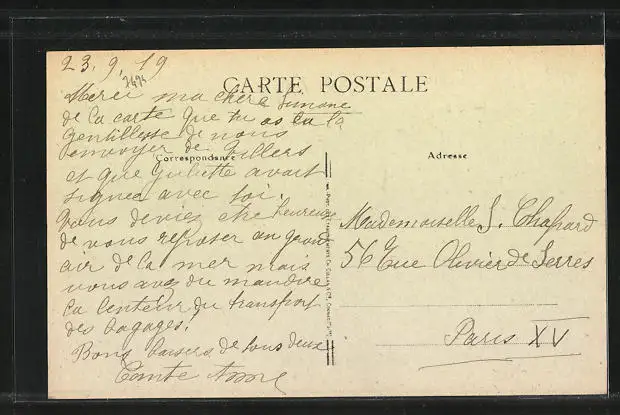 23.9.19
7494
CARTE POSTALE
Merci ma chère Simone
de la carte que tu as eu la
gentillesse de nous
envoyer de Villers
et que Juliette avait
signée avec toi.
Vous deviez être heureuses
de vous reposer au grand
air de la mer mais
vous avez du maudire
la lenteur du transport
des bagages!
Bons baisers de tous deux
Correspondance
Adresse
Mademoiselle S. Chapard
56 rue Olivier de Serres
Paris XV